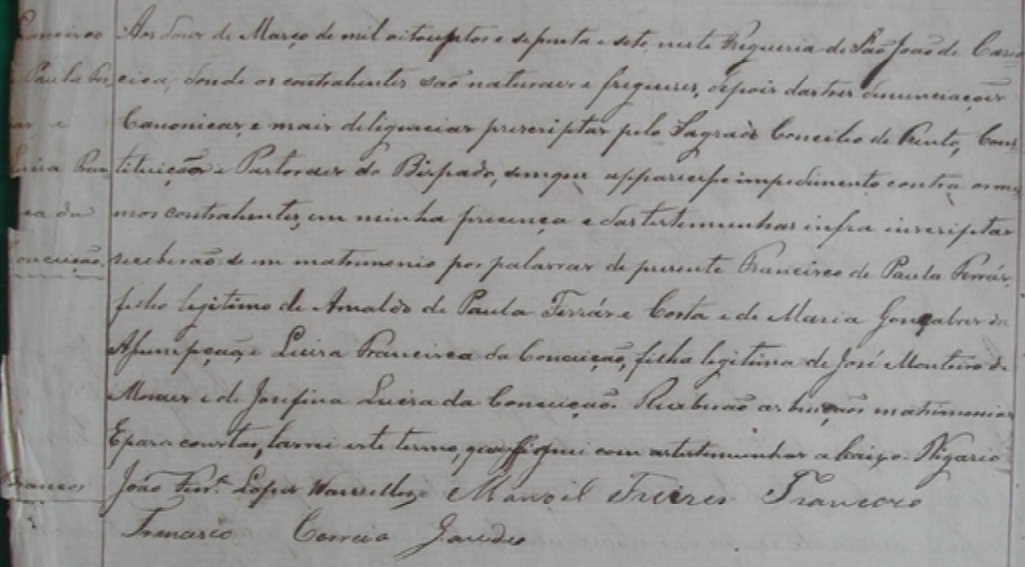 Francisco
de Paula Fer-
raz e
Luiza Fran-
cisca da
Conceição.
Brancos
Aos doze de Março de mil oitocentos e setenta e sete, nesta Freguezia de São João de Cario-
cica, donde os contrahentes são naturaes e freguezes, depois das tres denunciações
Canonicas, e mais deligencias prescriptas pelo Sagrado Concilio de Trento, Cons-
tituição e Pastoraes do Bispado, sem que apparecesse impedimento contra os mes-
mos contrahentes, em minha presença e das testemunhas infra inscriptas
receberão-se em matrimonio por palavras de presente Francisco de Paula Ferráz,
filho legitimo de Arnaldo de Paula Ferráz e Costa e de Maria Gonçalves da
Assumpção, e Luiza Francisca da Conceição, filha legitima de José Monteiro de
Moraes e de Josefina Luiza da Conceição. Receberão as bençãos matrimoniaes
E para constar, lavrei este termo, que assignei com as testemunhas abaixo. Vigario
João Lopes Manoel Freires
Francisco Correia